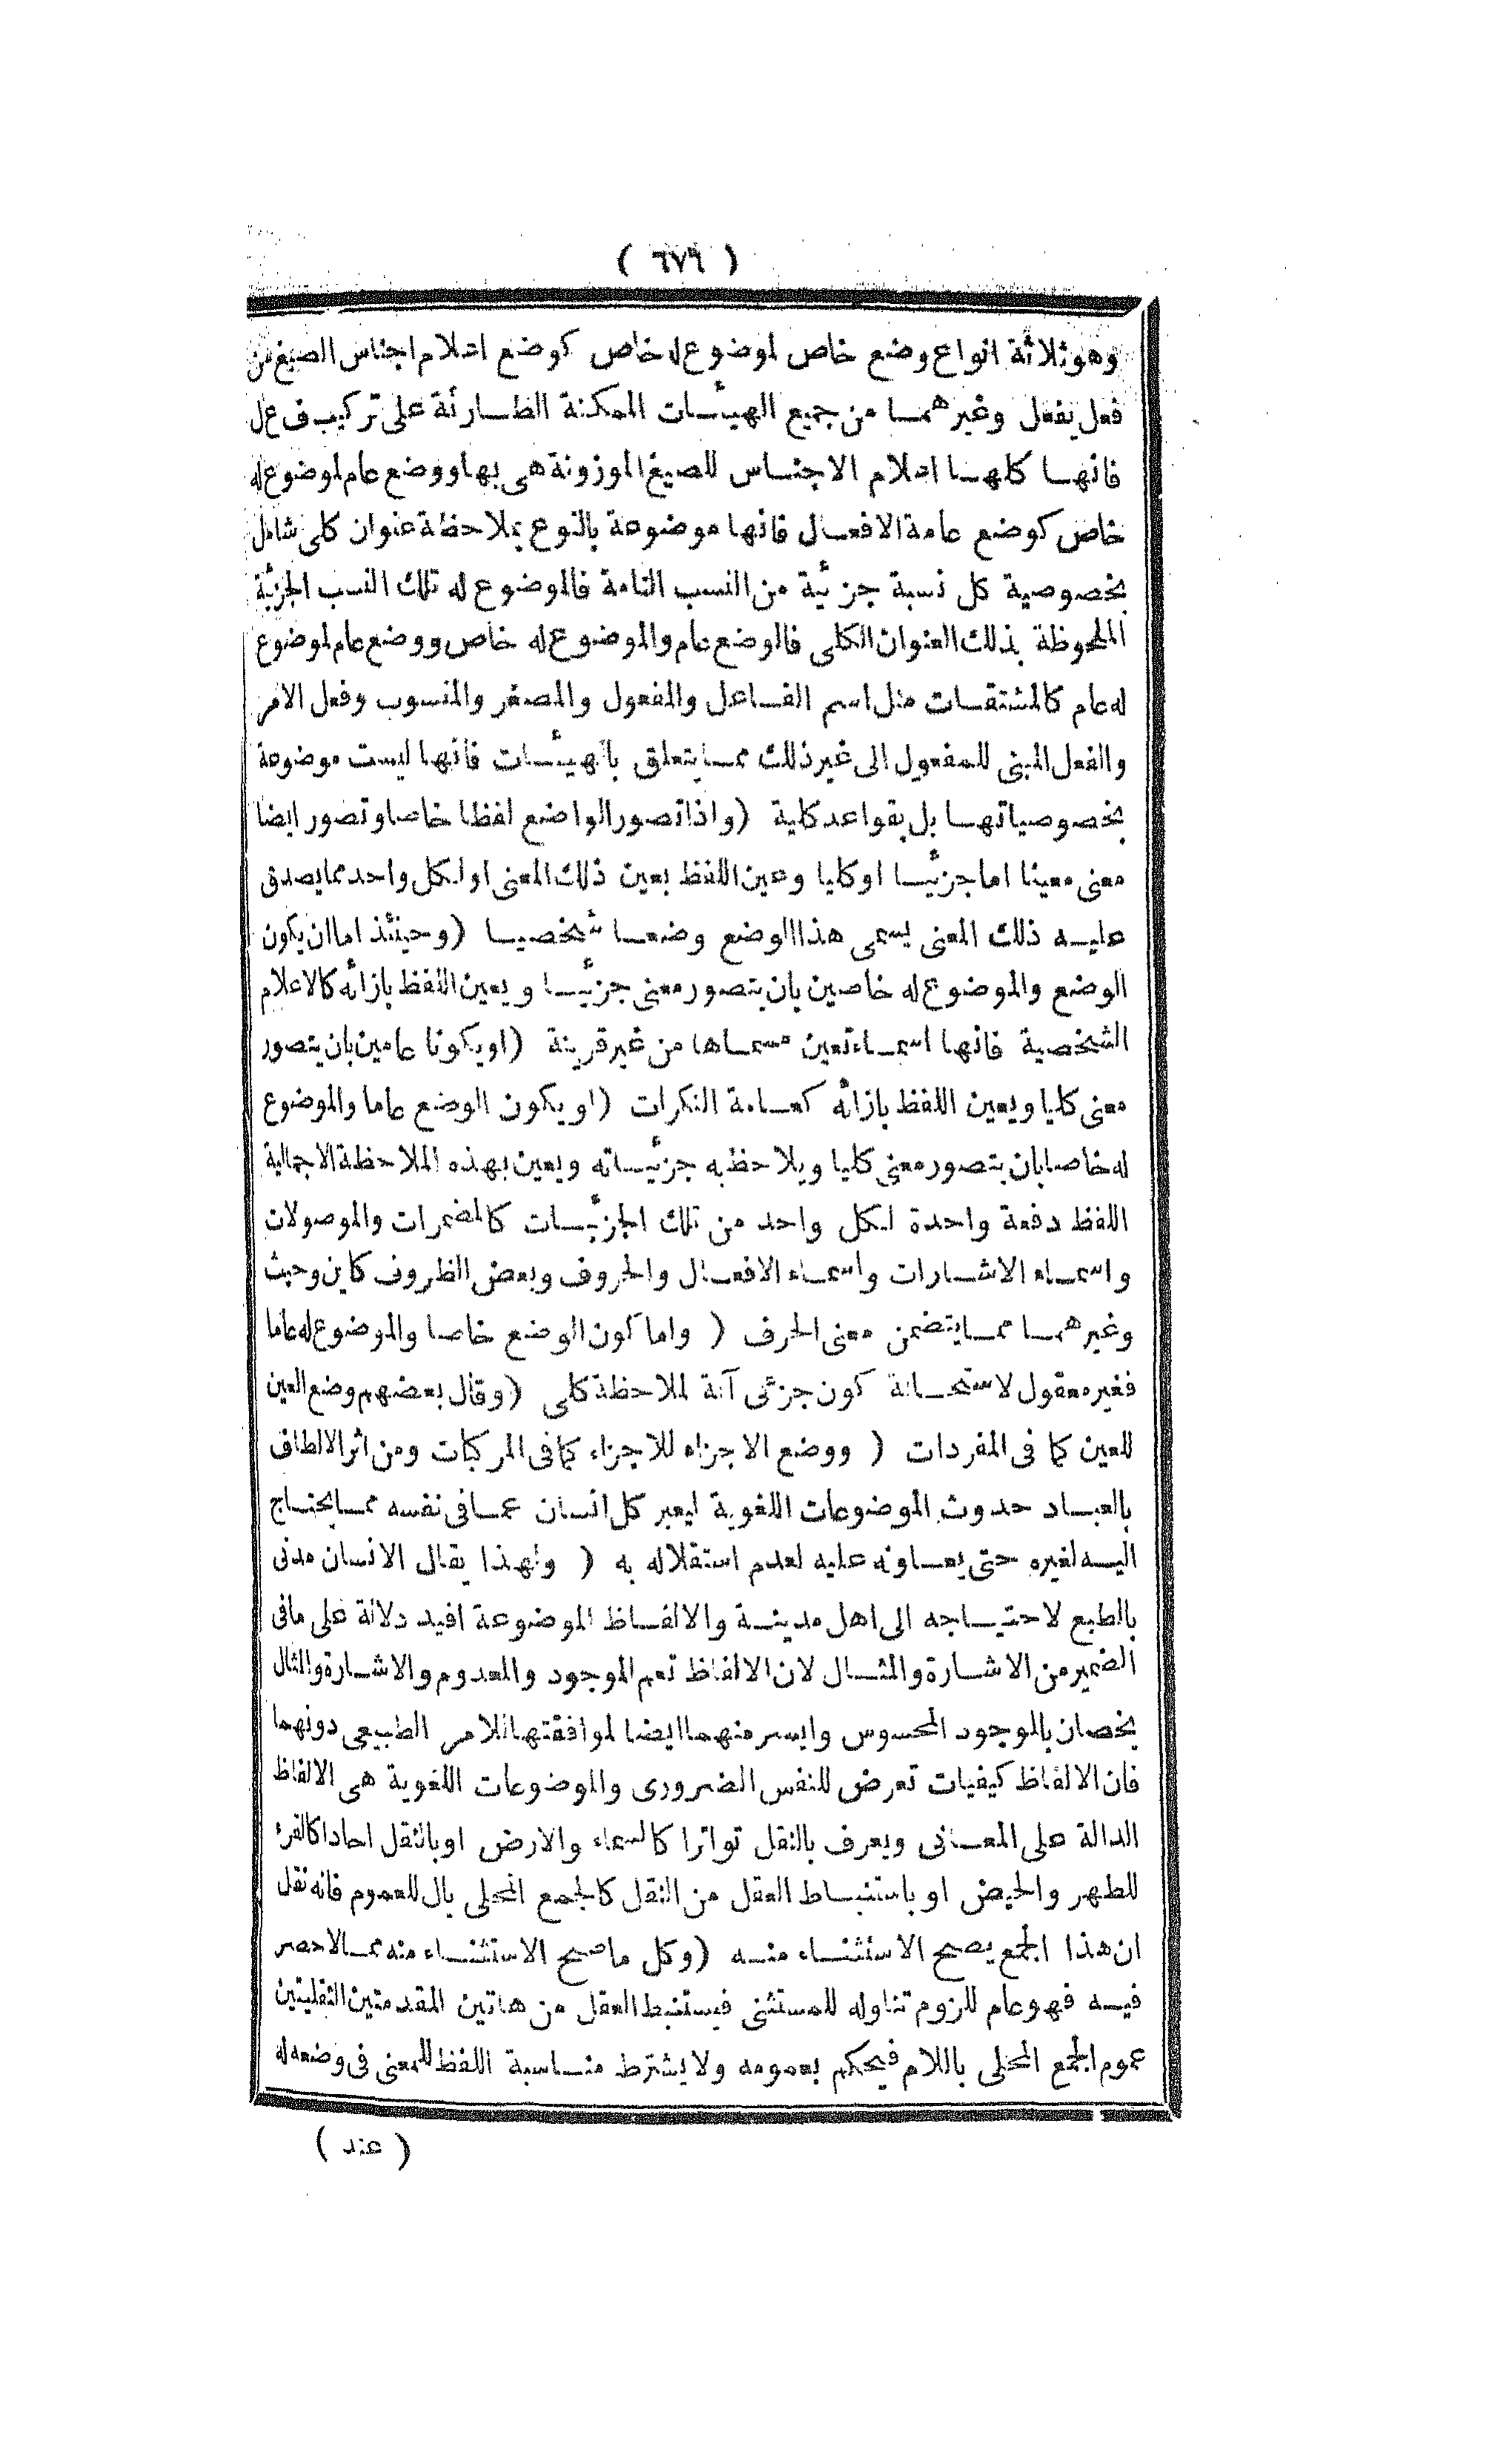 ( ٦٧٩ )
وهو ثلاثة انواع وضع خاص لموضوع له خاص كوضع اعلام اجناس الصيغ من
فعل يفعل وغيرهمـا من جميع الهيئـات الممكنة الطـارئة على تركيب ف ع ل
فانهـا كلهـا اعلام الاجنـاس للصيغ الموزونة هى بها ووضع عام لموضوع له
خاص كوضع عامة الافعـال فانها موضوعة بالنوع بملاحظة عنوان كلى شامل
بخصوصية كل نسبة جزئية من النسب التامة فالموضوع له تلك النسب الجزئية
الملحوظة بذلك العنوان الكلى فالوضع عام والموضوع له خاص ووضع عام لموضوع
له عام كالمشتقـات مثل اسم الفـاعل والمفعول والمصغر والمنسوب وفعل الامر
والفعل المبنى للمفعول الى غير ذلك ممـا يتعلق بالهيئـات فانها ليست موضوعة
بخصوصياتهـا بل بقواعد كلية (واذا تصور الواضع لفظا خاصا وتصور ايضا
معنى معينا اما جزئيـا او كليا وعين اللفظ بعين ذلك المعنى او لكل واحد مما يصدق
عليـه ذلك المعنى يسمى هذا الوضع وضعـا شخصيـا (وحينئذ اما ان يكون
الوضع والموضوع له خاصين بان يتصور معنى جزئيـا ويعين اللفظ بازائه كالاعلام
الشخصية فانها اسمـاء تعين مسمـاها من غير قرينة (او يكونا عامين بان يتصور
معنى كليا ويعين اللفظ بازائه كعـامة النكرات (او يكون الوضع عاما والموضوع
له خاصا بان يتصور معنى كليا ويلاحظ به جزئيـاته ويعين بهذه الملاحظة الاجمالية
اللفظ دفعة واحدة لكل واحد من تلك الجزئيـات كالمضمرات والموصولات
واسمـاء الاشـارات واسمـاء الافعـال والحروف وبعض الظروف كاين وحيث
وغيرهمـا ممـا يتضمن معنى الحرف ( واما كون الوضع خاصا والموضوع له عاما
فغير معقول لاستحـالة كون جزئى آلة لملاحظة كلى (وقال بعضهم وضع العين
للعين كما فى المفردات ( ووضع الاجزاء للاجزاء كما فى المركبات ومن اثر الالطاف
بالعبـاد حدوث الموضوعات اللغوية ليعبر كل انسان عمـا فى نفسه ممـا يحتـاج
اليـه لغيره حتى يعـاونه عليه لعدم استقلاله به ( ولهذا يقال الانسان مدنى
بالطبع لاحتيـاجه الى اهل مدينـة والالفـاظ الموضوعة افيد دلالة على ما فى
الضمير من الاشـارة والمثـال لان الالفاظ تعم الموجود والمعدوم والاشـارة والمثال
يخصان بالموجود المحسوس وايسر منهما ايضا لموافقتها للامر الطبيعى دونهما
فان الالفاظ كيفيات تعرض للنفس الضرورى والموضوعات اللغوية هى الالفاظ
الدالة على المعـانى ويعرف بالنقل تواترا كالسماء والارض او بالنقل احادا كالقرء
للطهر والحيض او باستنبـاط العقل من النقل كالجمع المحلى بال للعموم فانه نقل
ان هذا الجمع يصح الاستثنـاء منـه (وكل ما صح الاستثنـاء منه ممـا لا حصر
فيـه فهو عام للزوم تناوله للمستثنى فيستنبط العقل من هاتين المقدمتين النقليتين
عموم الجمع المحلى باللام فيحكم بعمومه ولا يشترط منـاسبة اللفظ للمعنى فى وضعه له
( عند )